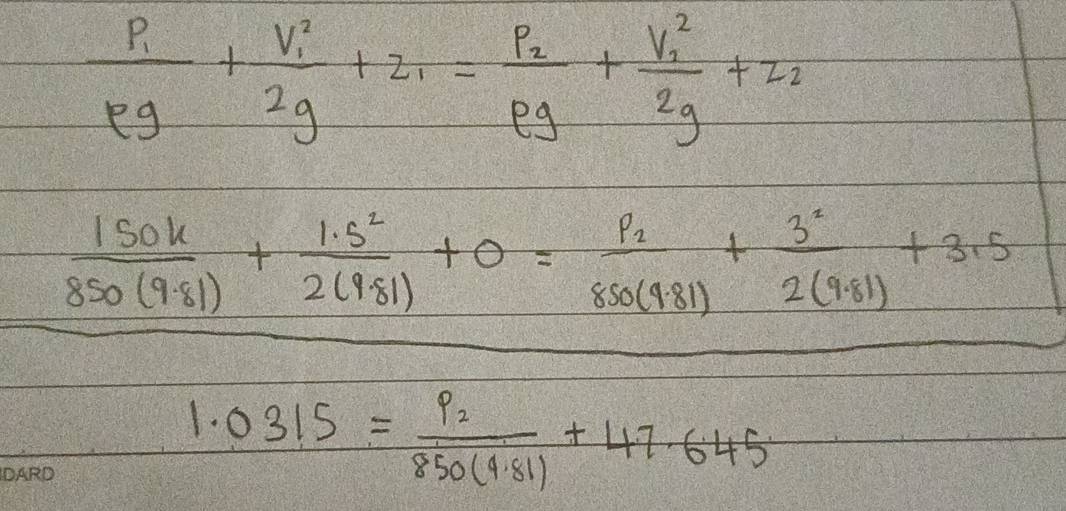 P₁/ρg + V₁²/2g + z₁ = P₂/ρg + V₂²/2g + z₂
150k/850(9.81) + 1.5²/2(9.81) + 0 = P₂/850(9.81) + 3²/2(9.81) + 3.5
1.0315 = P₂/850(9.81) + 47.645
DARD